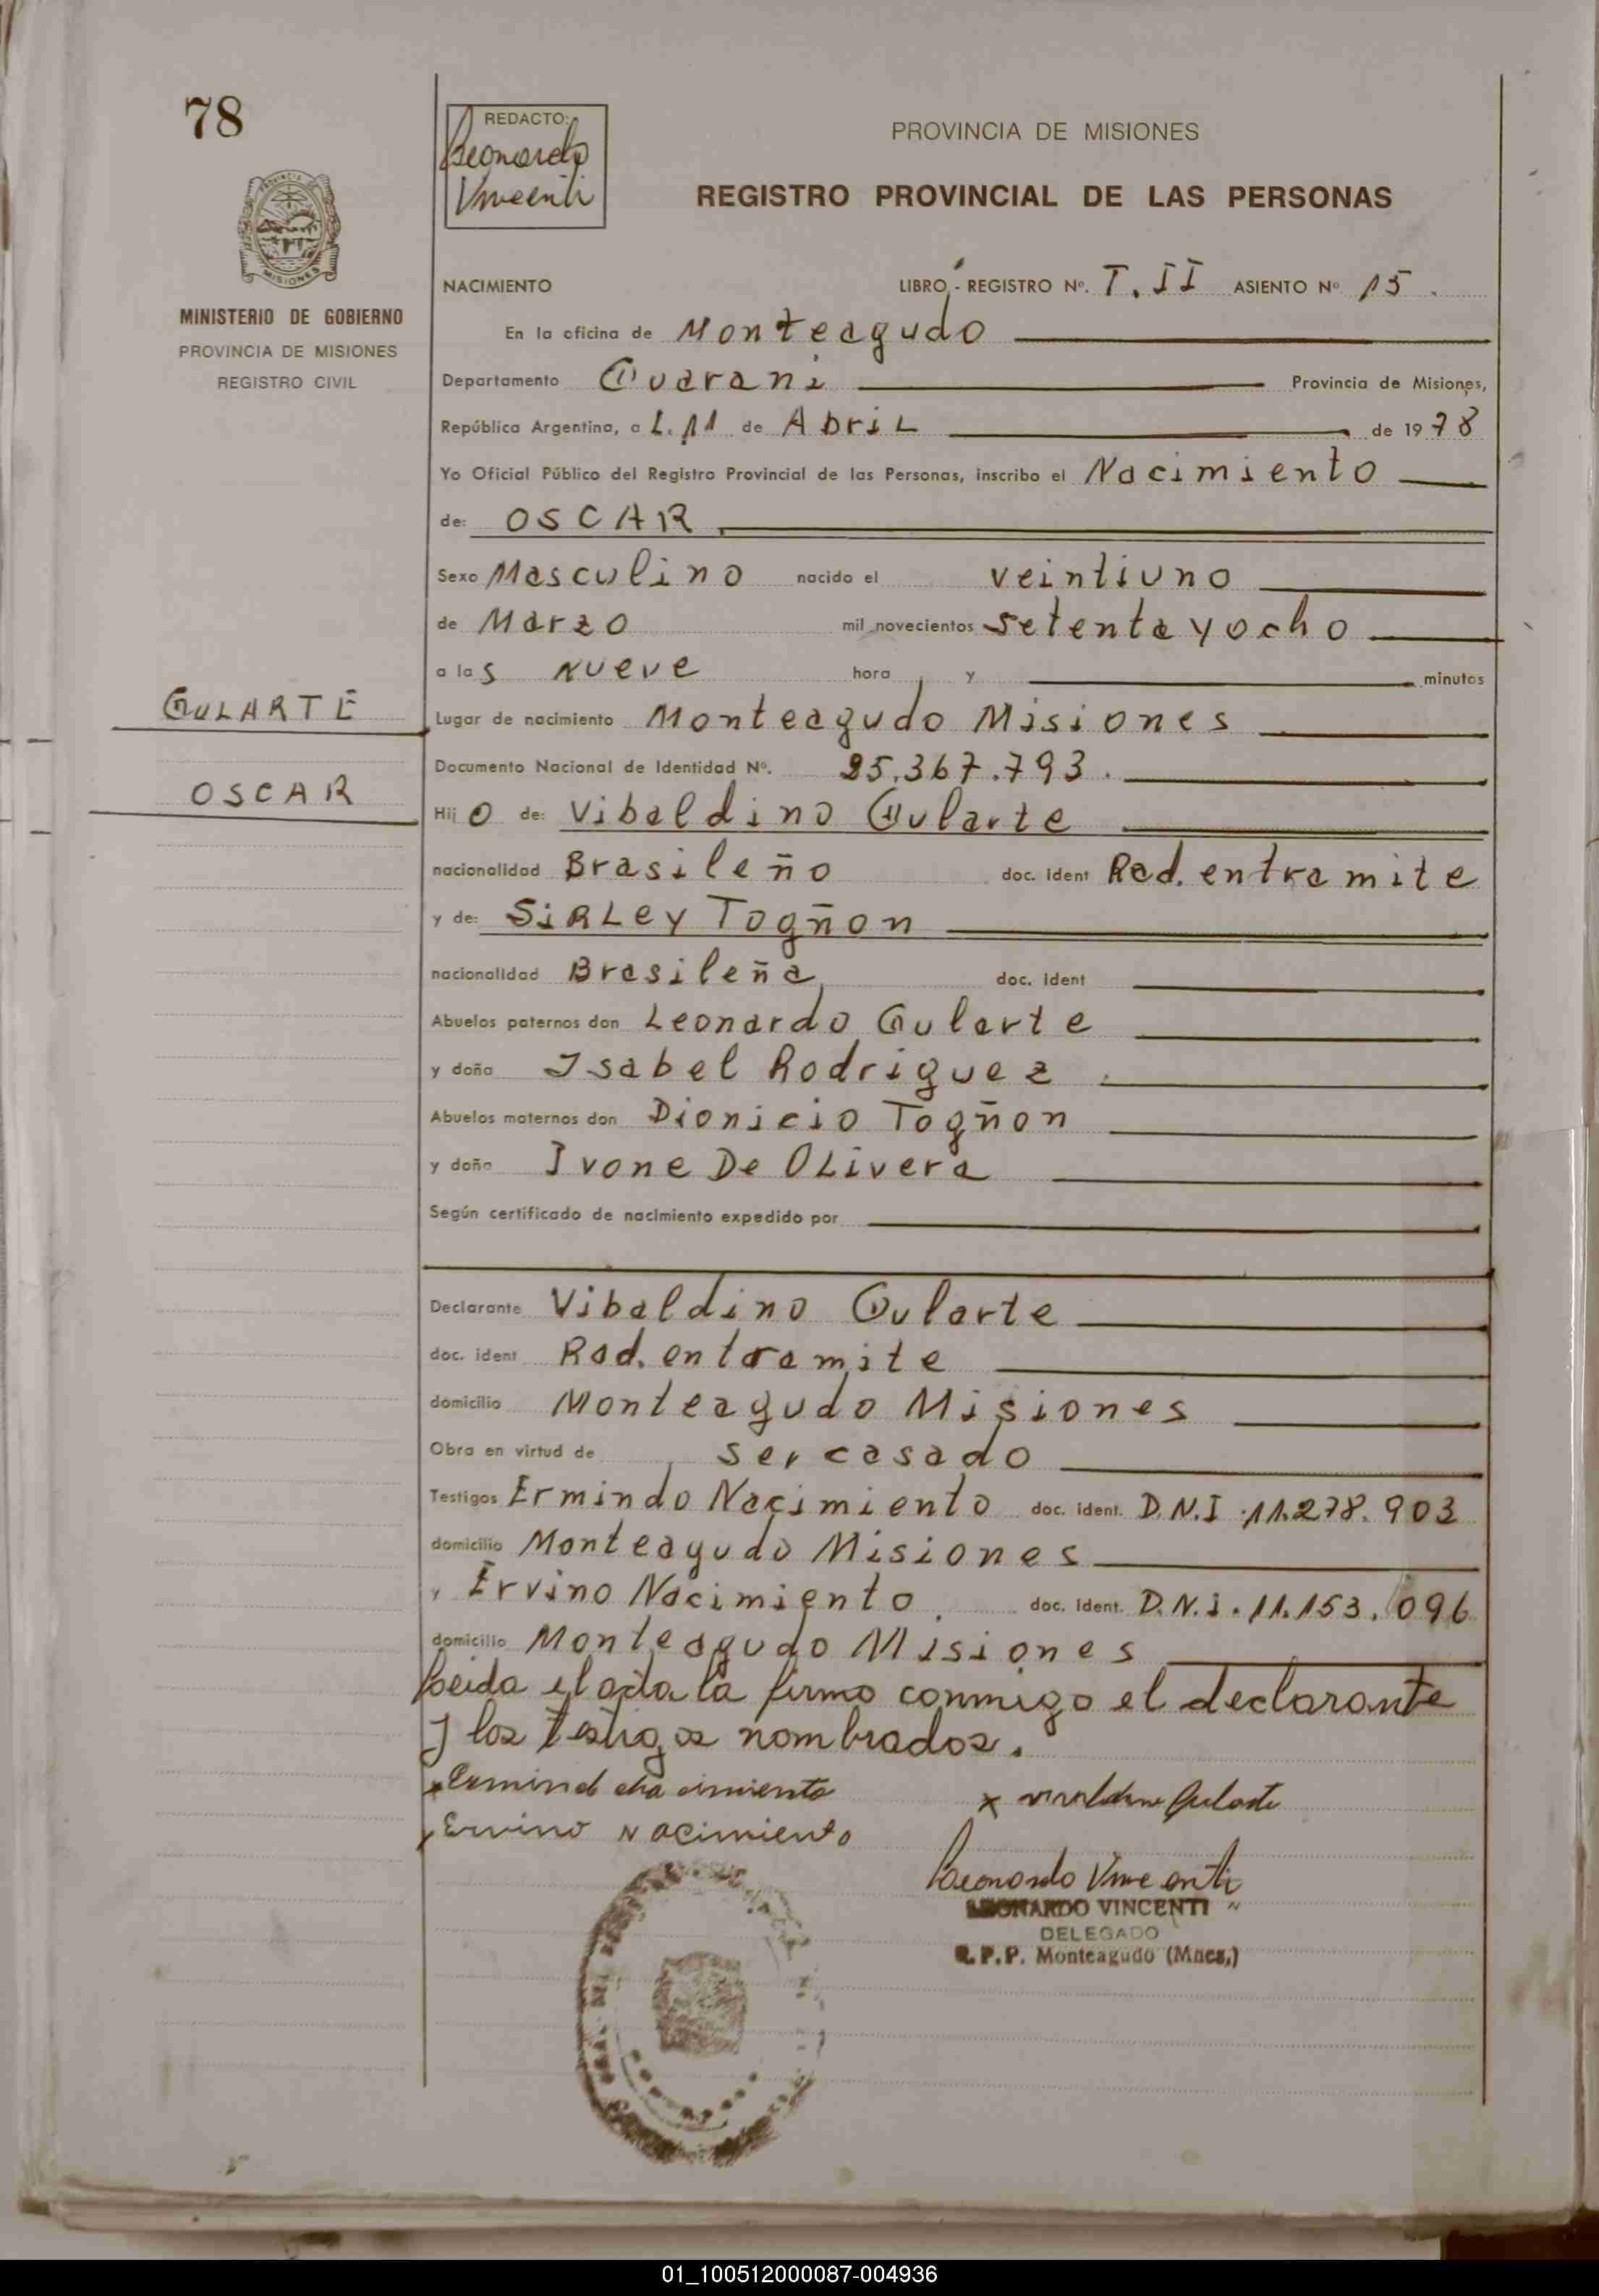 78
REDACTO:
Leonardo
Vincenti
PROVINCIA DE MISIONES
REGISTRO PROVINCIAL DE LAS PERSONAS
MISIONES
MINISTERIO DE GOBIERNO
PROVINCIA DE MISIONES
REGISTRO CIVIL
NACIMIENTO LIBRO - REGISTRO Nº. T. II ASIENTO Nº 15.
En la oficina de Monteagudo
Departamento Guarani Provincia de Misiones,
República Argentina, a L. 11 de Abril de 1978
Yo Oficial Público del Registro Provincial de las Personas, inscribo el Nacimiento
de: OSCAR
Sexo Masculino nacido el veintiuno
de Marzo mil novecientos setenta y ocho
a las Nueve hora y minutos
GULARTE
Lugar de nacimiento Monteagudo Misiones
Documento Nacional de Identidad Nº. 25.367.793.
OSCAR
Hijo de: Vibaldino Gularte
nacionalidad Brasileño doc. ident Rad. entramite
y de: SiRLey Togñon
nacionalidad Brasileña doc. ident
Abuelos paternos don Leonardo Gularte
y doña Isabel Rodriguez
Abuelos maternos don Dionicio Togñon
y doña Ivone De OLivera
Según certificado de nacimiento expedido por
Declarante Vibaldino Gularte
doc. ident Rad. entramite
domicilio Monteagudo Misiones
Obra en virtud de ser casado
Testigos Ermindo Nacimiento doc. ident. D.N.I. 11.278.903
domicilio Monteagudo Misiones
y Ervino Nacimiento. doc. ident. D.N.i. 11.153.096
domicilio Monteagudo Misiones
Leida el acta la firmo conmigo el declarante
y los testigos nombrados.
x Ermindo Nacimiento x Gularte
x Ervino Nacimiento
Leonardo Vincenti
LEONARDO VINCENTI
DELEGADO
R.P.P. Monteagudo (Mnes.)
01_100512000087-004936